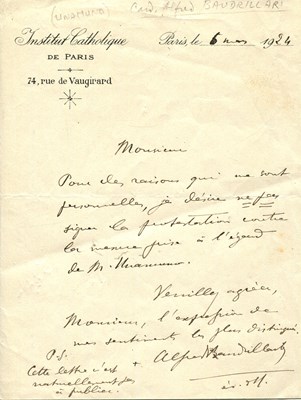 (UNAMUNO) Card. Alfred BAUDRILLART
Institut Catholique
DE PARIS
74, rue de Vaugirard
Paris, le 6 mars 1924
Monsieur
Pour des raisons qui me sont
personnelles, je désire ne pas
signer la protestation contre
la mesure prise à l'égard
de M. Unamuno.
Veuillez agréer,
Monsieur, l'expression de
mes sentiments les plus distingués.
+ Alfred Baudrillart
P.S.
Cette lettre n'est
naturellement pas
à publier.